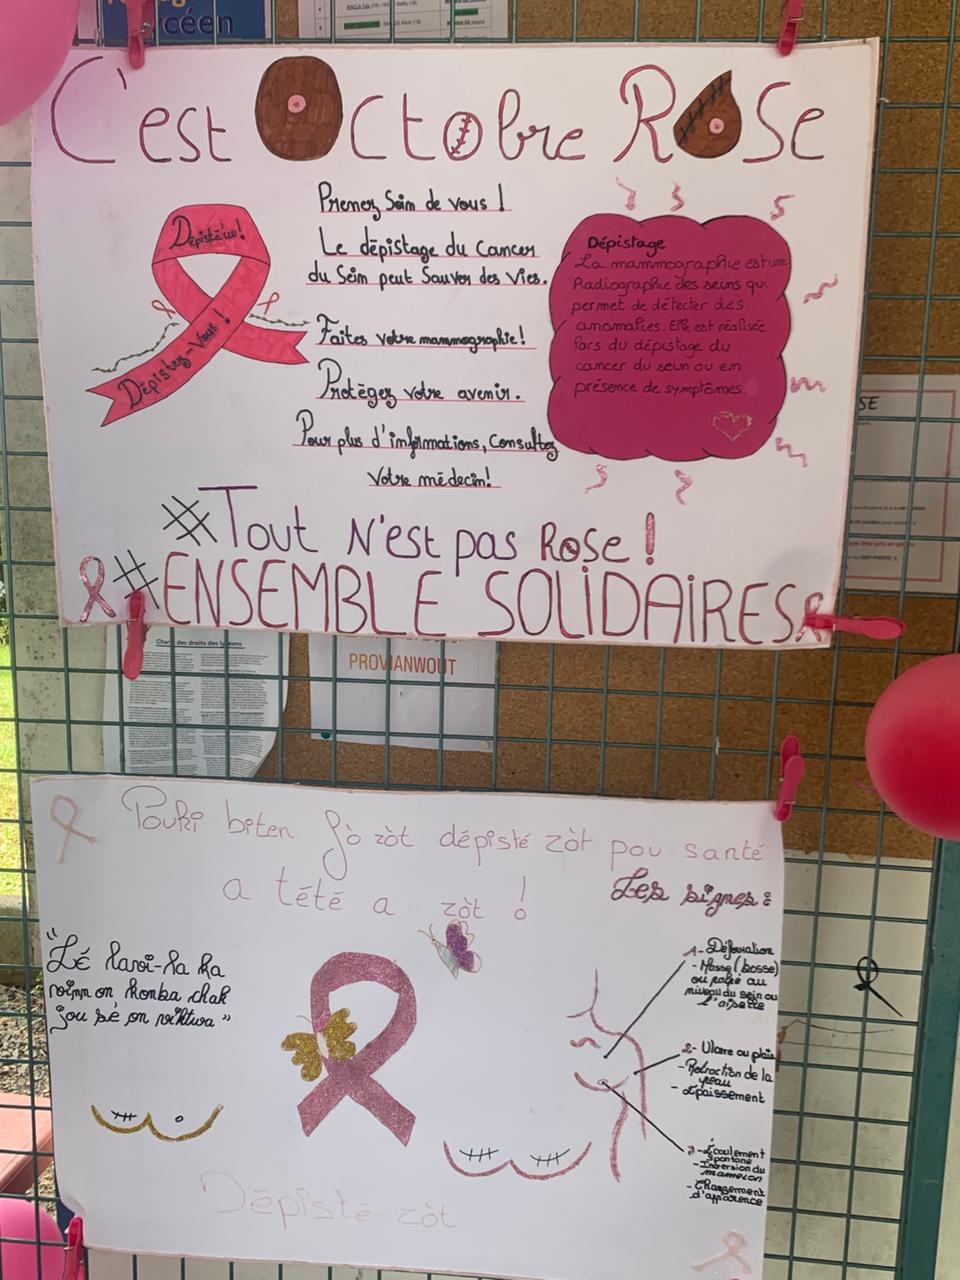 céen
C'est Octobre Rose
Dépisté'w!
Dépistez-Vous !
Prenez Soin de vous !
Le dépistage du Cancer
du Sein peut Sauver des Vies.
Faites votre mammographie!
Protégez votre avenir.
Pour plus d'informations, Consultez
votre médecin!
Dépistage
La mammographie est une
Radiographie des seins qui
permet de détecter des
anomalies. Elle est réalisée
lors du dépistage du
cancer du sein ou en
présence de symptômes.
#Tout N'est pas Rose !
#ENSEMBLE SOLIDAIRES
SE
des droits des lycéens
PROVIANWOUT
Pouki biten fò zòt dépisté zòt pou santé
a tété a zòt !
Les signes :
"Lé lavi-la ka
vinn on konba chak
jou sé on viktwa"
1- Déformation
- Masse (bosse)
ou palpé au
niveau du sein ou
l'aiselle
2- Ulcère ou plaie
- Rétraction de la
peau
- Épaissement
3- Écoulement
spontané
- Inversion du
mamelon
- Changement
d'apparence
Dépisté zòt